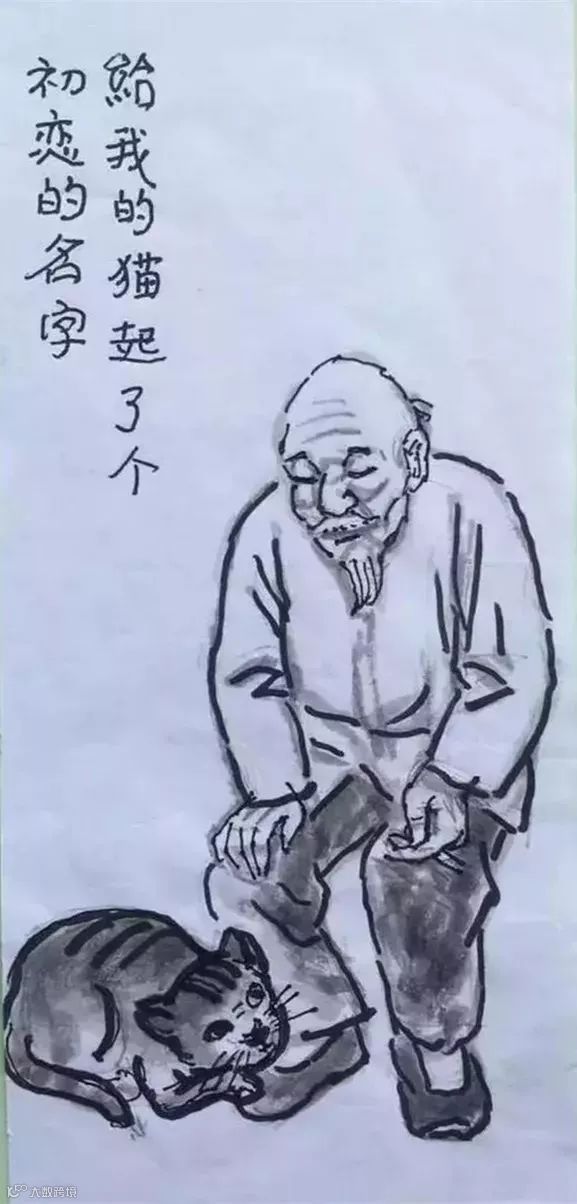 給我的猫起了个
初恋的名字
大数跨境